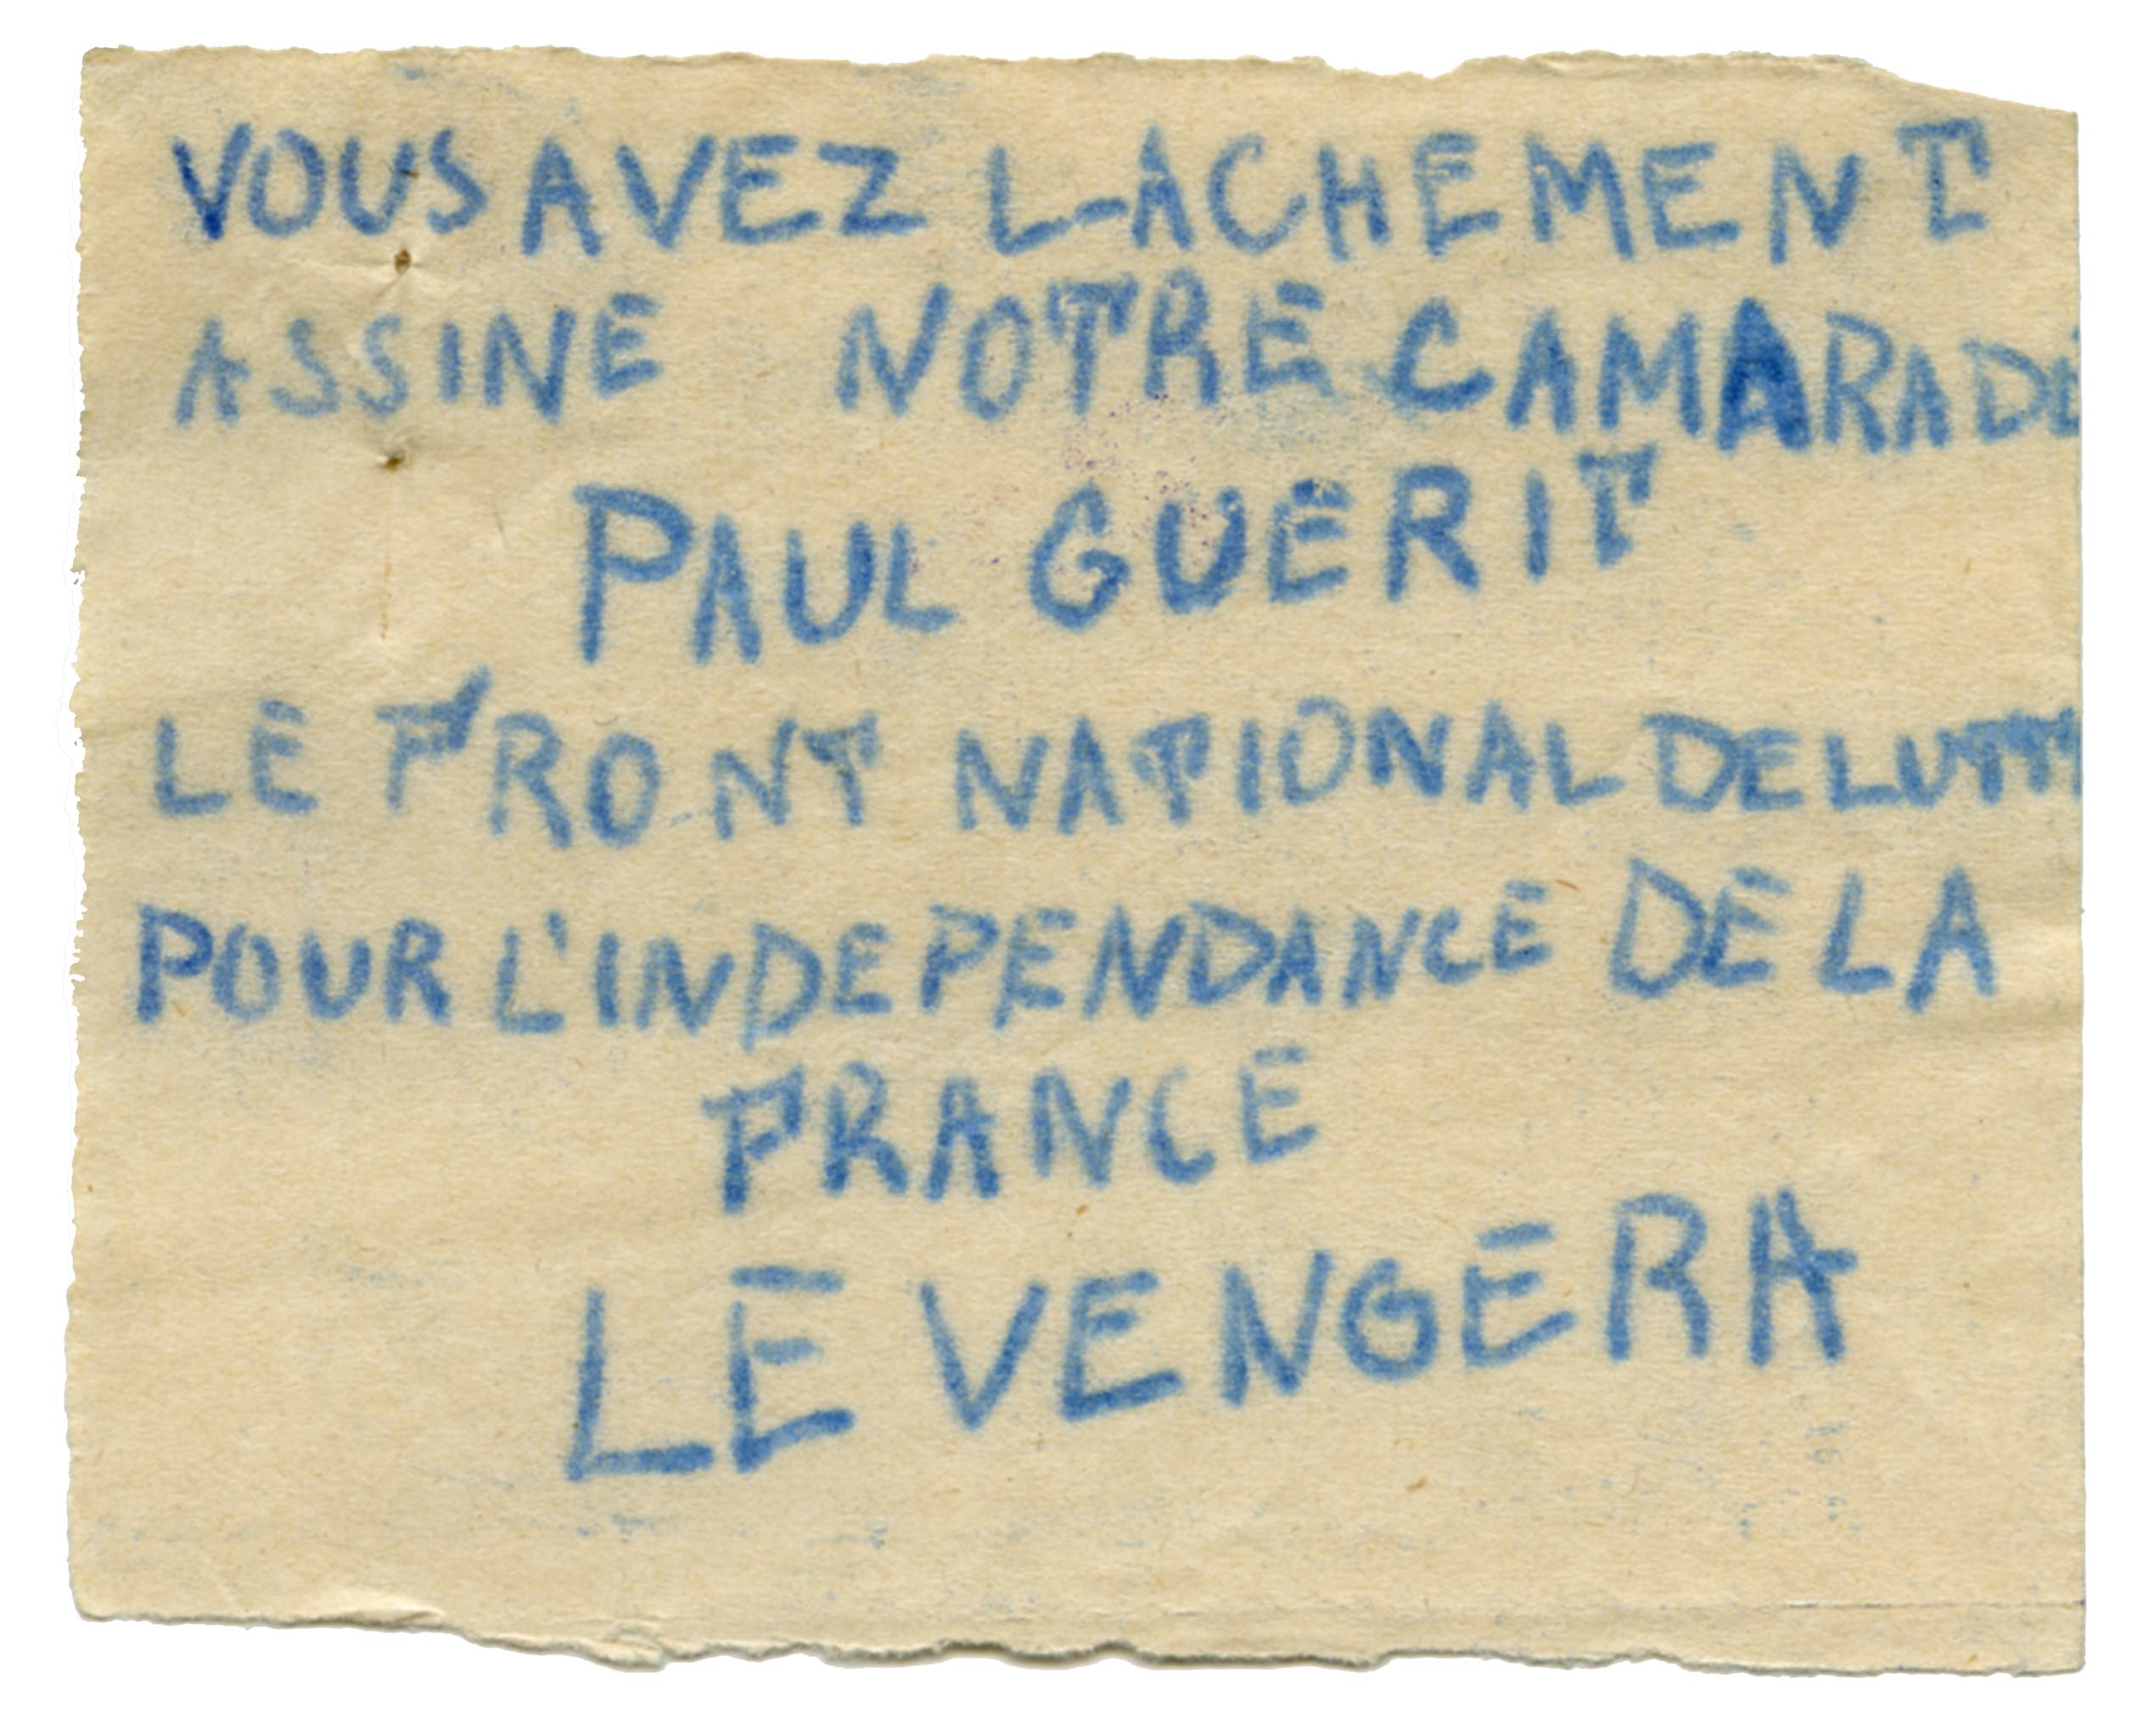 VOUS AVEZ L-ACHEMENT
ASSINE NOTRE CAMARADE
PAUL GUERIT
LE FRONT NATIONAL DE LUTTE
POUR L'INDEPENDANCE DE LA
FRANCE
LE VENGERA